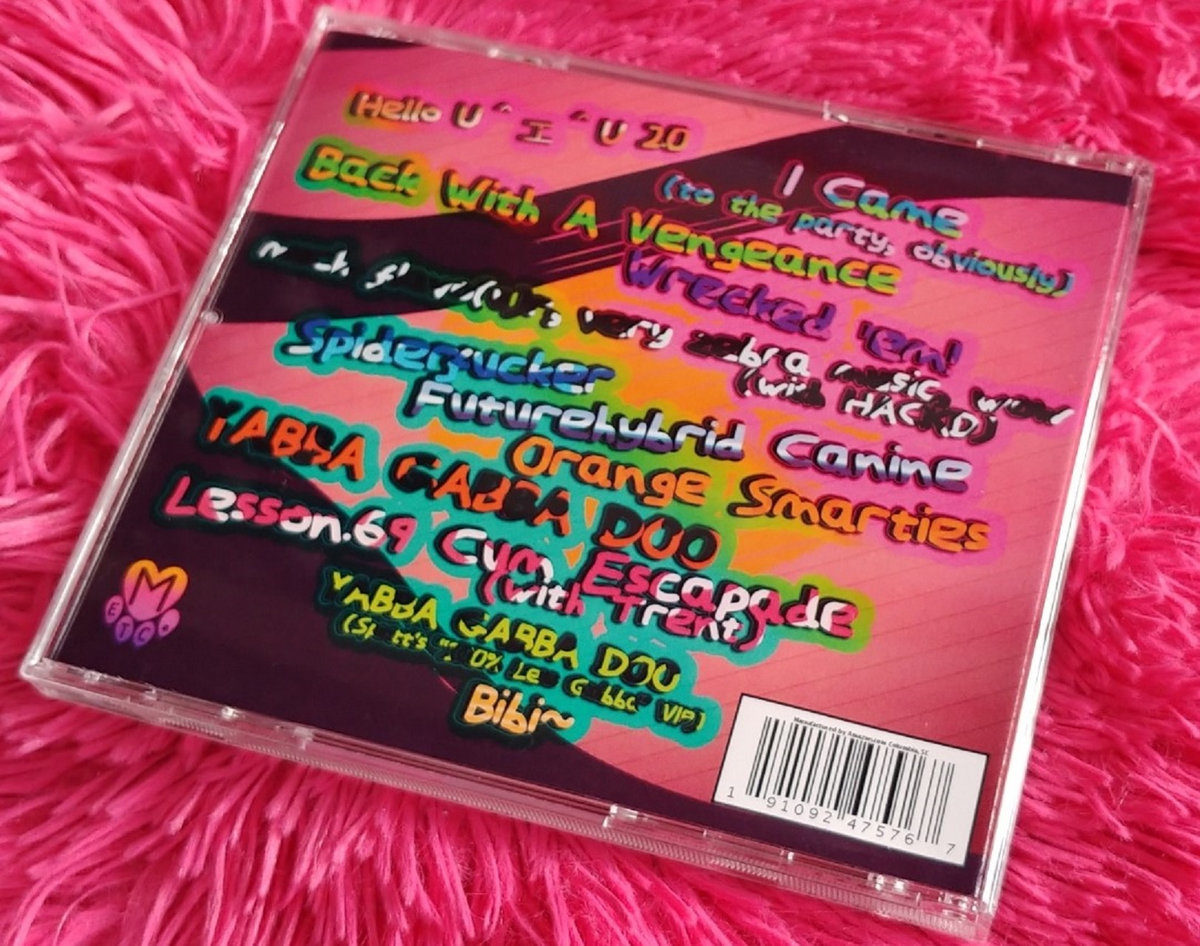 Hello U ^ エ ^ U 20
I Came
(to the party, obviously)
Back With A Vengeance
Wrecked 'em!
very zebra music, wow
(with HACKD)
Spiderfucker
Futurehybrid Canine
Orange Smarties
YABBA GABBA DOO
Lesson.69 Cum Escapade
(with Trent)
YABBA GABBA DOO
VIP)
Bibi~
M
ETC.
Manufactured by Amazon.com Columbia, SC
1 91092 47576 7